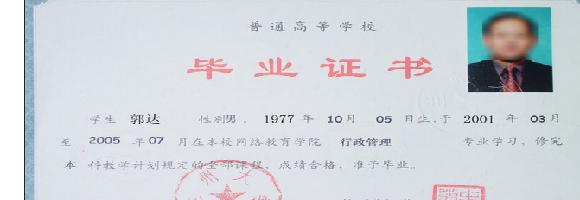 普通高等学校
毕业证书
学生 郭达 性别男，1977年10月05日生，于2001年03月
至2005年07月在本校网络教育学院 行政管理 专业学习，修完
本科教学计划规定的全部课程，成绩合格，准予毕业。